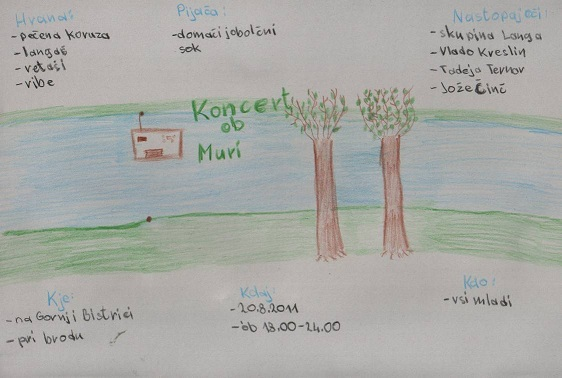 Hrana:
-pečena koruza
-langaš
-retaši
-ribe
Pijača:
-domači jobolčni
sok
Nastopajoči:
-skupina Langa
-Vlado Kreslin
-Tadeja Ternar
-Jože Činč
Koncert
ob
Muri
Kje:
-na Gornji Bistrici
-pri brodu
Kdaj:
-20.8.2011
-ob 18.00-24.00
Kdo:
-vsi mladi